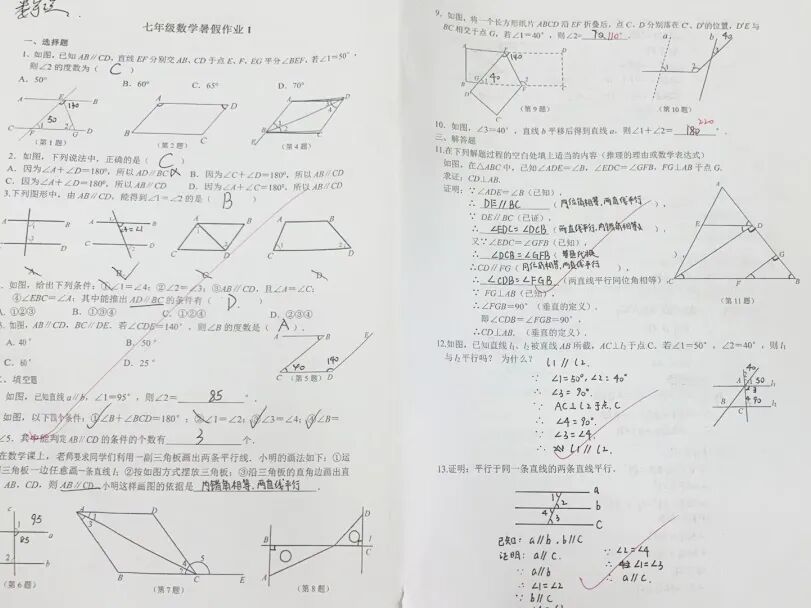 七年级数学暑假作业 1
一、选择题
1、如图,已知 AB∥CD,直线 EF 分别交 AB、CD 于点 E、F,EG 平分∠BEF,若∠1=50°,
则∠2 的度数为( C )
A.50° B.60° C.65° D.70°
(第 1 题) (第 2 题) (第 4 题)
2.如图,下列说法中,正确的是( C )
A.因为∠A+∠D=180°,所以 AD∥BC B.因为∠C+∠D=180°,所以 AB∥CD
C.因为∠A+∠D=180°,所以 AB∥CD D.因为∠A+∠C=180°,所以 AB∥CD
3.下列图形中,由 AB∥CD,能得到∠1=∠2 的是( B )
如图,给出下列条件:①∠1=∠4;②∠2=∠3;③AB∥CD,且∠A=∠C;
④∠EBC=∠A;其中能推出 AD∥BC 的条件有( D )
①②③ B.①③④ C.①②④ D.②③④
如图,AB∥CD,BC∥DE,若∠CDE=140°,则∠B 的度数是( A )
A.40° B.50°
C.60° D.25°
(第 5 题)
填空题
如图,已知直线 a∥b,∠1=95°,则∠2= 85 °.
如图,以下四个条件:①∠B+∠BCD=180°;②∠1=∠2;③∠3=∠4;④∠B=
∠5,其中能判定 AB∥CD 的条件的个数有 3 个.
在数学课上,老师要求同学们利用一副三角板画出两条平行线.小明的画法如下:①运
三角板一边任意画一条直线l;②按如图方式摆放三角板;③沿三角板的直角边画出直
AB、CD,则 AB∥CD.小明这样画图的依据是 内错角相等,两直线平行.
(第 6 题) (第 7 题) (第 8 题)
9.如图,将一个长方形纸片 ABCD 沿 EF 折叠后,点 C、D 分别落在 C′、D′的位置,D′E 与
BC 相交于点 G,若∠1=40°,则∠2= 70 110°.
(第 9 题) (第 10 题)
10.如图,∠3=40°,直线 b 平移后得到直线 a,则∠1+∠2= 180 220
三、解答题
11.在下列解题过程的空白处填上适当的内容(推理的理由或数学表达式)
如图,在△ABC 中,已知∠ADE=∠B,∠EDC=∠GFB,FG⊥AB 于点 G.
求证:CD⊥AB.
证明:∵∠ADE=∠B(已知),
∴ DE∥BC ( 同位角相等,两直线平行 ),
∵ DE∥BC(已证),
∴ ∠EDC=∠DCB ( 两直线平行,内错角相等 ),
又∵∠EDC=∠GFB(已知),
∴ ∠DCB=∠GFB ( 等量代换 ),
∴CD∥FG(同位角相等,两直线平行),
∴ ∠CDB=∠FGB (两直线平行同位角相等),
∵ FG⊥AB(已知),
∴∠FGB=90°(垂直的定义).
即∠CDB=∠FGB=90°,
∴CD⊥AB.(垂直的定义).
(第 11 题)
12.如图,已知直线 l₁、l₂ 被直线 AB 所截,AC⊥l₂ 于点 C.若∠1=50°,∠2=40°,则 l₁
与 l₂ 平行吗?为什么? l1∥l2
∵ ∠1=50°,∠2=40°
∴ ∠3=90°.
∵ AC⊥l2于点C
∴ ∠4=90°.
∵ ∠3=∠4
∴ l1∥l2.
13.证明:平行于同一条直线的两条直线平行.
已知:a∥b,b∥C
证明:a∥C. ∵ ∠2=∠4
∵ a∥b ∴ ∠1=∠3
∴ ∠1=∠2 ∴ a∥C.
∵ b∥C